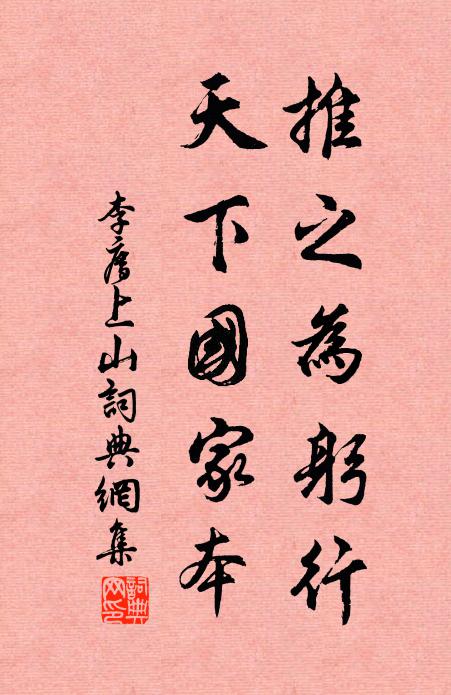 推之為躬行
天下國家本
李膺上山詞典網集
詞典網印